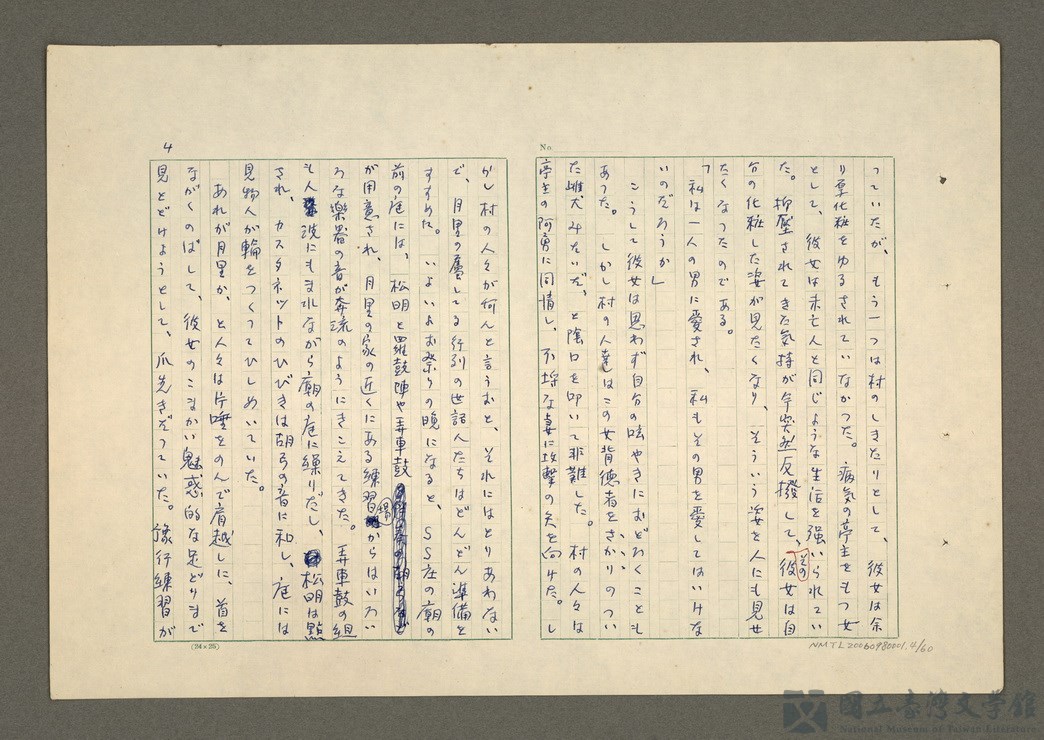 No.
つていたが、もう一つは村のしきたりとして、彼女は余
り厚化粧をゆるされていなかつた。病気の亭主をもつ女
として、彼女は未亡人と同じような生活を強いられてい
た。抑壓されてきた気持が今突然反撥して、その彼女は自
分の化粧した姿が見たくなり、そういう姿を人にも見せ
たくなつたのである。
「私は一人の男に愛され、私もその男を愛してはいけな
いのだろうか」
こうして彼女は思わず自分の呟やきにおどろくことも
あつた。しかし村の人達はこの女背徳者をさかりのつい
た雌犬みたいだ、と陰口を叩いて非難した。村の人々は
亭主の阿勇に同情し、不埒な妻に攻撃の矢を向けた。し
4
かし村の人々が何んと言うおと、それにはとりあわない
で、月里の属してる行列の世話人たちはどんどん準備を
すすめた。いよいよお祭りの晩になると、SS庄の廟の
前の庭には、松明と羅鼓陣や弄車鼓
が用意され、月里の家の近くにある練習場からはいろい
ろな楽器の音が奔流のようにきこえてきた。弄車鼓の組
も人波にもまれながら廟の庭に繰りだし、松明は點
され、カスタネットのひびきは胡弓の音に和し、庭には
見物人が輪をつくつてひしめいていた。
あれが月里か、と人々は片唾をのんで肩越しに、首を
ながくのばして、彼女のこまかい魅惑的な足どりまで
見とどけようとして、爪先きだつていた。豫行練習が
(24×25)
NMTL20060980001.4/60
國立臺灣文學館
National Museum of Taiwan Literature